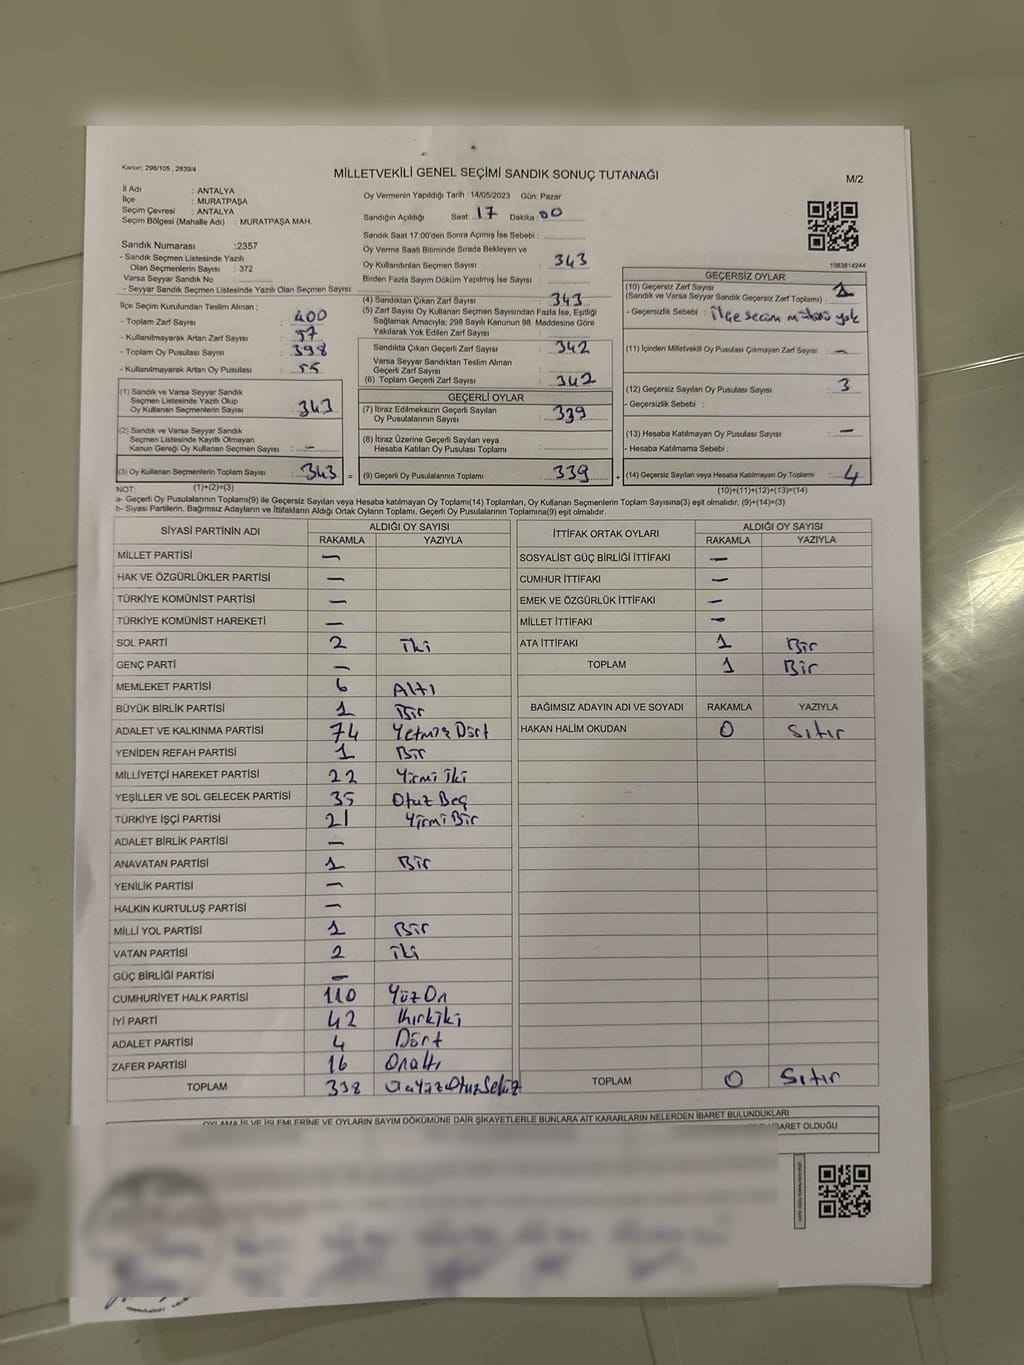 Kanun: 298/105 , 2839/4
MİLLETVEKİLİ GENEL SEÇİMİ SANDIK SONUÇ TUTANAĞI
M/2
İl Adı : ANTALYA
İlçe : MURATPAŞA
Seçim Çevresi : ANTALYA
Seçim Bölgesi (Mahalle Adı) : MURATPAŞA MAH.
Sandık Numarası :2357
- Sandık Seçmen Listesinde Yazılı
Olan Seçmenlerin Sayısı : 372
Varsa Seyyar Sandık No :
- Seyyar Sandık Seçmen Listesinde Yazılı Olan Seçmen Sayısı:
İlçe Seçim Kurulundan Teslim Alınan ;
- Toplam Zarf Sayısı : 400
- Kullanılmayarak Artan Zarf Sayısı : 57
- Toplam Oy Pusulası Sayısı : 398
- Kullanılmayarak Artan Oy Pusulası : 55
(1) Sandık ve Varsa Seyyar Sandık
Seçmen Listesinde Yazılı Olup
Oy Kullanan Seçmenlerin Sayısı : 343
(2) Sandık ve Varsa Seyyar Sandık
Seçmen Listesinde Kayıtlı Olmayan
Kanun Gereği Oy Kullanan Seçmen Sayısı : —
(3) Oy Kullanan Seçmenlerin Toplam Sayısı : 343 =
Oy Vermenin Yapıldığı Tarih : 14/05/2023 Gün: Pazar
Sandığın Açıldığı Saat: 17 Dakika: 00
Sandık Saat 17:00'den Sonra Açılmış İse Sebebi :
Oy Verme Saati Bitiminde Sırada Bekleyen ve
Oy Kullandırılan Seçmen Sayısı : 343
Birden Fazla Sayım Döküm Yapılmış İse Sayısı :
(4) Sandıktan Çıkan Zarf Sayısı : 343
(5) Zarf Sayısı Oy Kullanan Seçmen Sayısından Fazla İse, Eşitliği
Sağlamak Amacıyla; 298 Sayılı Kanunun 98. Maddesine Göre
Yakılarak Yok Edilen Zarf Sayısı :
Sandıkta Çıkan Geçerli Zarf Sayısı : 342
Varsa Seyyar Sandıktan Teslim Alınan
Geçerli Zarf Sayısı :
(6) Toplam Geçerli Zarf Sayısı : 342
GEÇERLİ OYLAR
(7) İtiraz Edilmeksizin Geçerli Sayılan
Oy Pusulalarının Sayısı : 339
(8) İtiraz Üzerine Geçerli Sayılan veya
Hesaba Katılan Oy Pusulası Toplamı :
(9) Geçerli Oy Pusulalarının Toplamı : 339 +
1083814244
GEÇERSİZ OYLAR
(10) Geçersiz Zarf Sayısı
(Sandık ve Varsa Seyyar Sandık Geçersiz Zarf Toplamı) : 1
- Geçersizlik Sebebi : İlçe seçim mührü yok
(11) İçinden Milletvekili Oy Pusulası Çıkmayan Zarf Sayısı : —
(12) Geçersiz Sayılan Oy Pusulası Sayısı : 3
- Geçersizlik Sebebi :
(13) Hesaba Katılmayan Oy Pusulası Sayısı : —
- Hesaba Katılmama Sebebi :
(14) Geçersiz Sayılan veya Hesaba Katılmayan Oy Toplamı : 4
NOT: (1)+(2)=(3) (10)+(11)+(12)+(13)=(14)
a- Geçerli Oy Pusulalarının Toplamı(9) ile Geçersiz Sayılan veya Hesaba katılmayan Oy Toplamı(14) Toplamları, Oy Kullanan Seçmenlerin Toplam Sayısına(3) eşit olmalıdır. (9)+(14)=(3)
b- Siyasi Partilerin, Bağımsız Adayların ve İttifakların Aldığı Ortak Oyların Toplamı, Geçerli Oy Pusulalarının Toplamına(9) eşit olmalıdır.
SİYASİ PARTİNİN ADI ALDIĞI OY SAYISI
RAKAMLA YAZIYLA
MİLLET PARTİSİ —
HAK VE ÖZGÜRLÜKLER PARTİSİ —
TÜRKİYE KOMÜNİST PARTİSİ —
TÜRKİYE KOMÜNİST HAREKETİ —
SOL PARTİ 2 İki
GENÇ PARTİ —
MEMLEKET PARTİSİ 6 Altı
BÜYÜK BİRLİK PARTİSİ 1 Bir
ADALET VE KALKINMA PARTİSİ 74 Yetmiş Dört
YENİDEN REFAH PARTİSİ 1 Bir
MİLLİYETÇİ HAREKET PARTİSİ 22 Yirmi İki
YEŞİLLER VE SOL GELECEK PARTİSİ 35 Otuz Beş
TÜRKİYE İŞÇİ PARTİSİ 21 Yirmi Bir
ADALET BİRLİK PARTİSİ —
ANAVATAN PARTİSİ 1 Bir
YENİLİK PARTİSİ —
HALKIN KURTULUŞ PARTİSİ —
MİLLİ YOL PARTİSİ 1 Bir
VATAN PARTİSİ 2 İki
GÜÇ BİRLİĞİ PARTİSİ —
CUMHURİYET HALK PARTİSİ 110 Yüz On
İYİ PARTİ 42 Kırkiki
ADALET PARTİSİ 4 Dört
ZAFER PARTİSİ 16 Onaltı
TOPLAM 338 ÜçyüzOtuzSekiz
İTTİFAK ORTAK OYLARI ALDIĞI OY SAYISI
RAKAMLA YAZIYLA
SOSYALİST GÜÇ BİRLİĞİ İTTİFAKI —
CUMHUR İTTİFAKI —
EMEK VE ÖZGÜRLÜK İTTİFAKI —
MİLLET İTTİFAKI —
ATA İTTİFAKI 1 Bir
TOPLAM 1 Bir
BAĞIMSIZ ADAYIN ADI VE SOYADI RAKAMLA YAZIYLA
HAKAN HALİM OKUDAN 0 Sıfır
TOPLAM 0 Sıfır
OYLAMA İŞ VE İŞLEMLERİNE VE OYLARIN SAYIM DÖKÜMÜNE DAİR ŞİKAYETLERLE BUNLARA AİT KARARLARIN NELERDEN İBARET BULUNDUKLARI
İBARET OLDUĞU